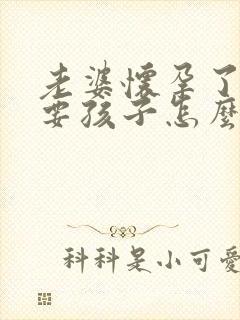 老婆懷孕了
要孩子怎麼
科科是小可愛